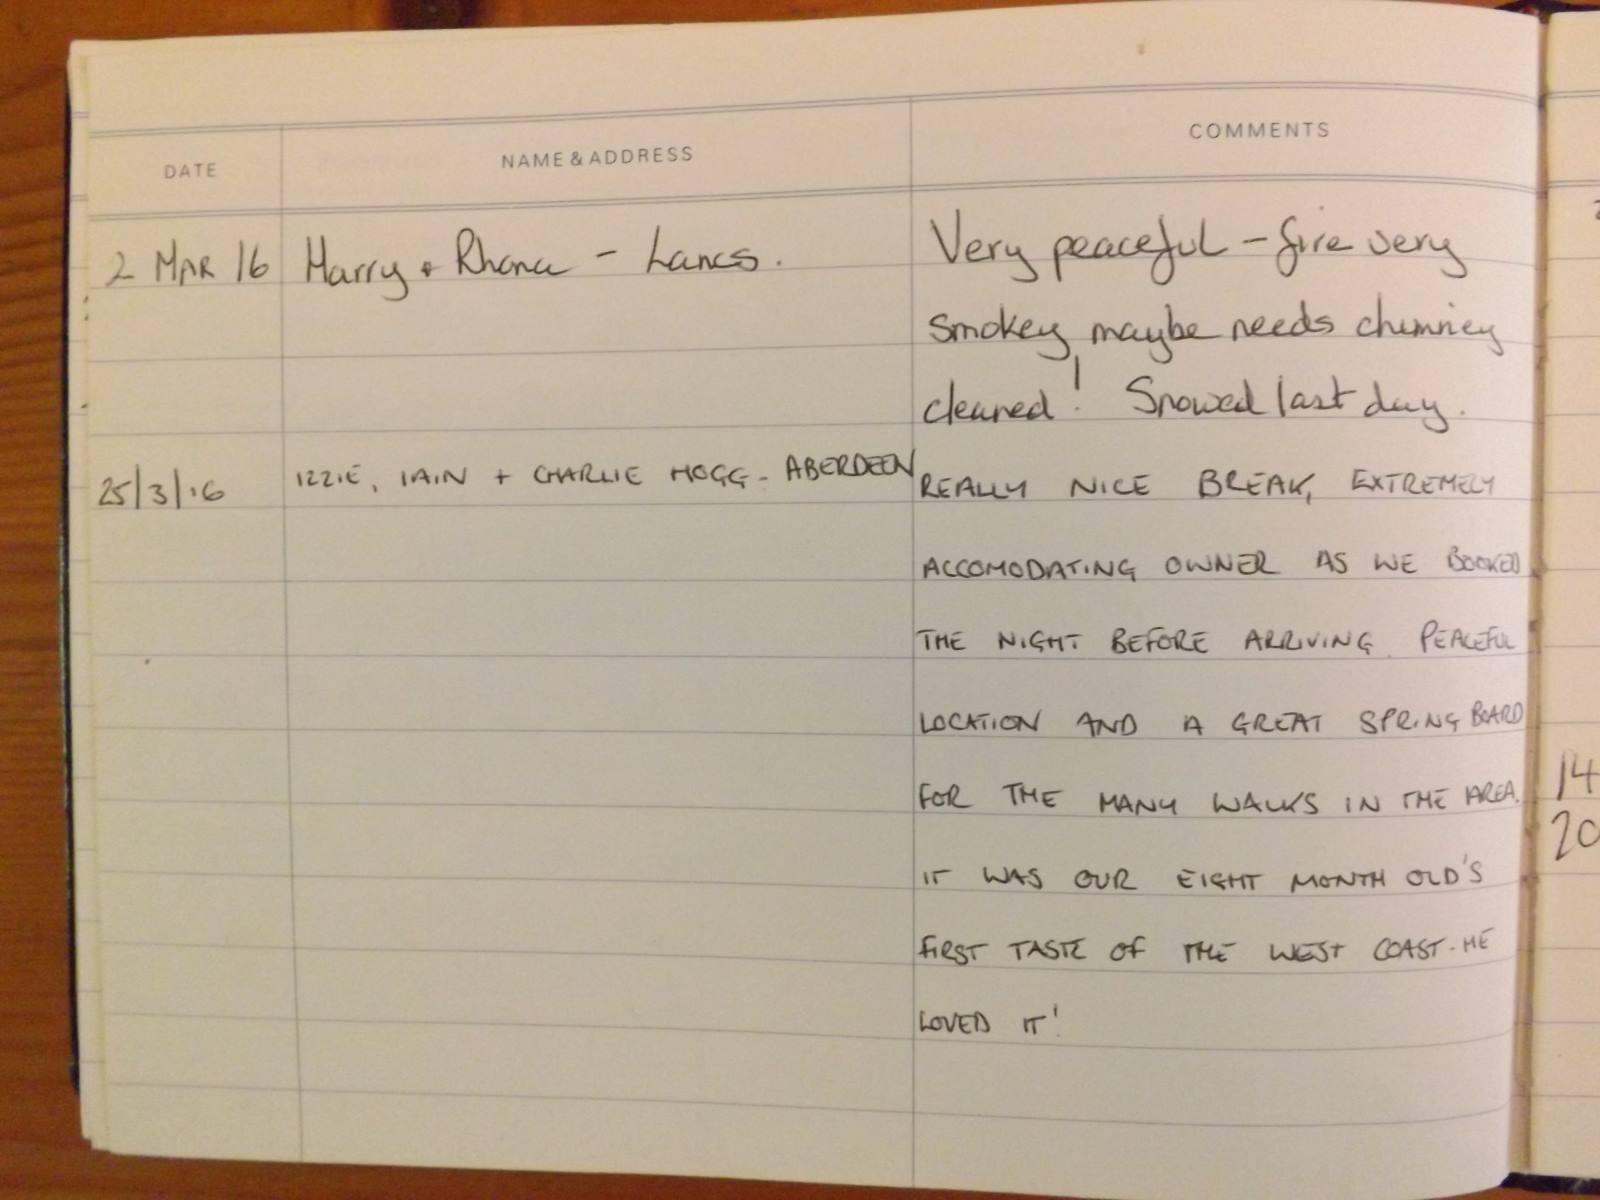 DATE NAME & ADDRESS COMMENTS
2 MAR 16 Harry + Rhona - Lancs. Very peaceful - fire very
smokey maybe needs chimney
cleaned! Snowed last day.
25/3/16 IZZIE, IAIN + CHARLIE HOGG - ABERDEEN REALLY NICE BREAK, EXTREMELY
ACCOMODATING OWNER AS WE BOOKED
THE NIGHT BEFORE ARRIVING. PEACEFUL
LOCATION AND A GREAT SPRING BOARD
FOR THE MANY WALKS IN THE AREA.
IT WAS OUR EIGHT MONTH OLD'S
FIRST TASTE OF THE WEST COAST. HE
LOVED IT!
14
20